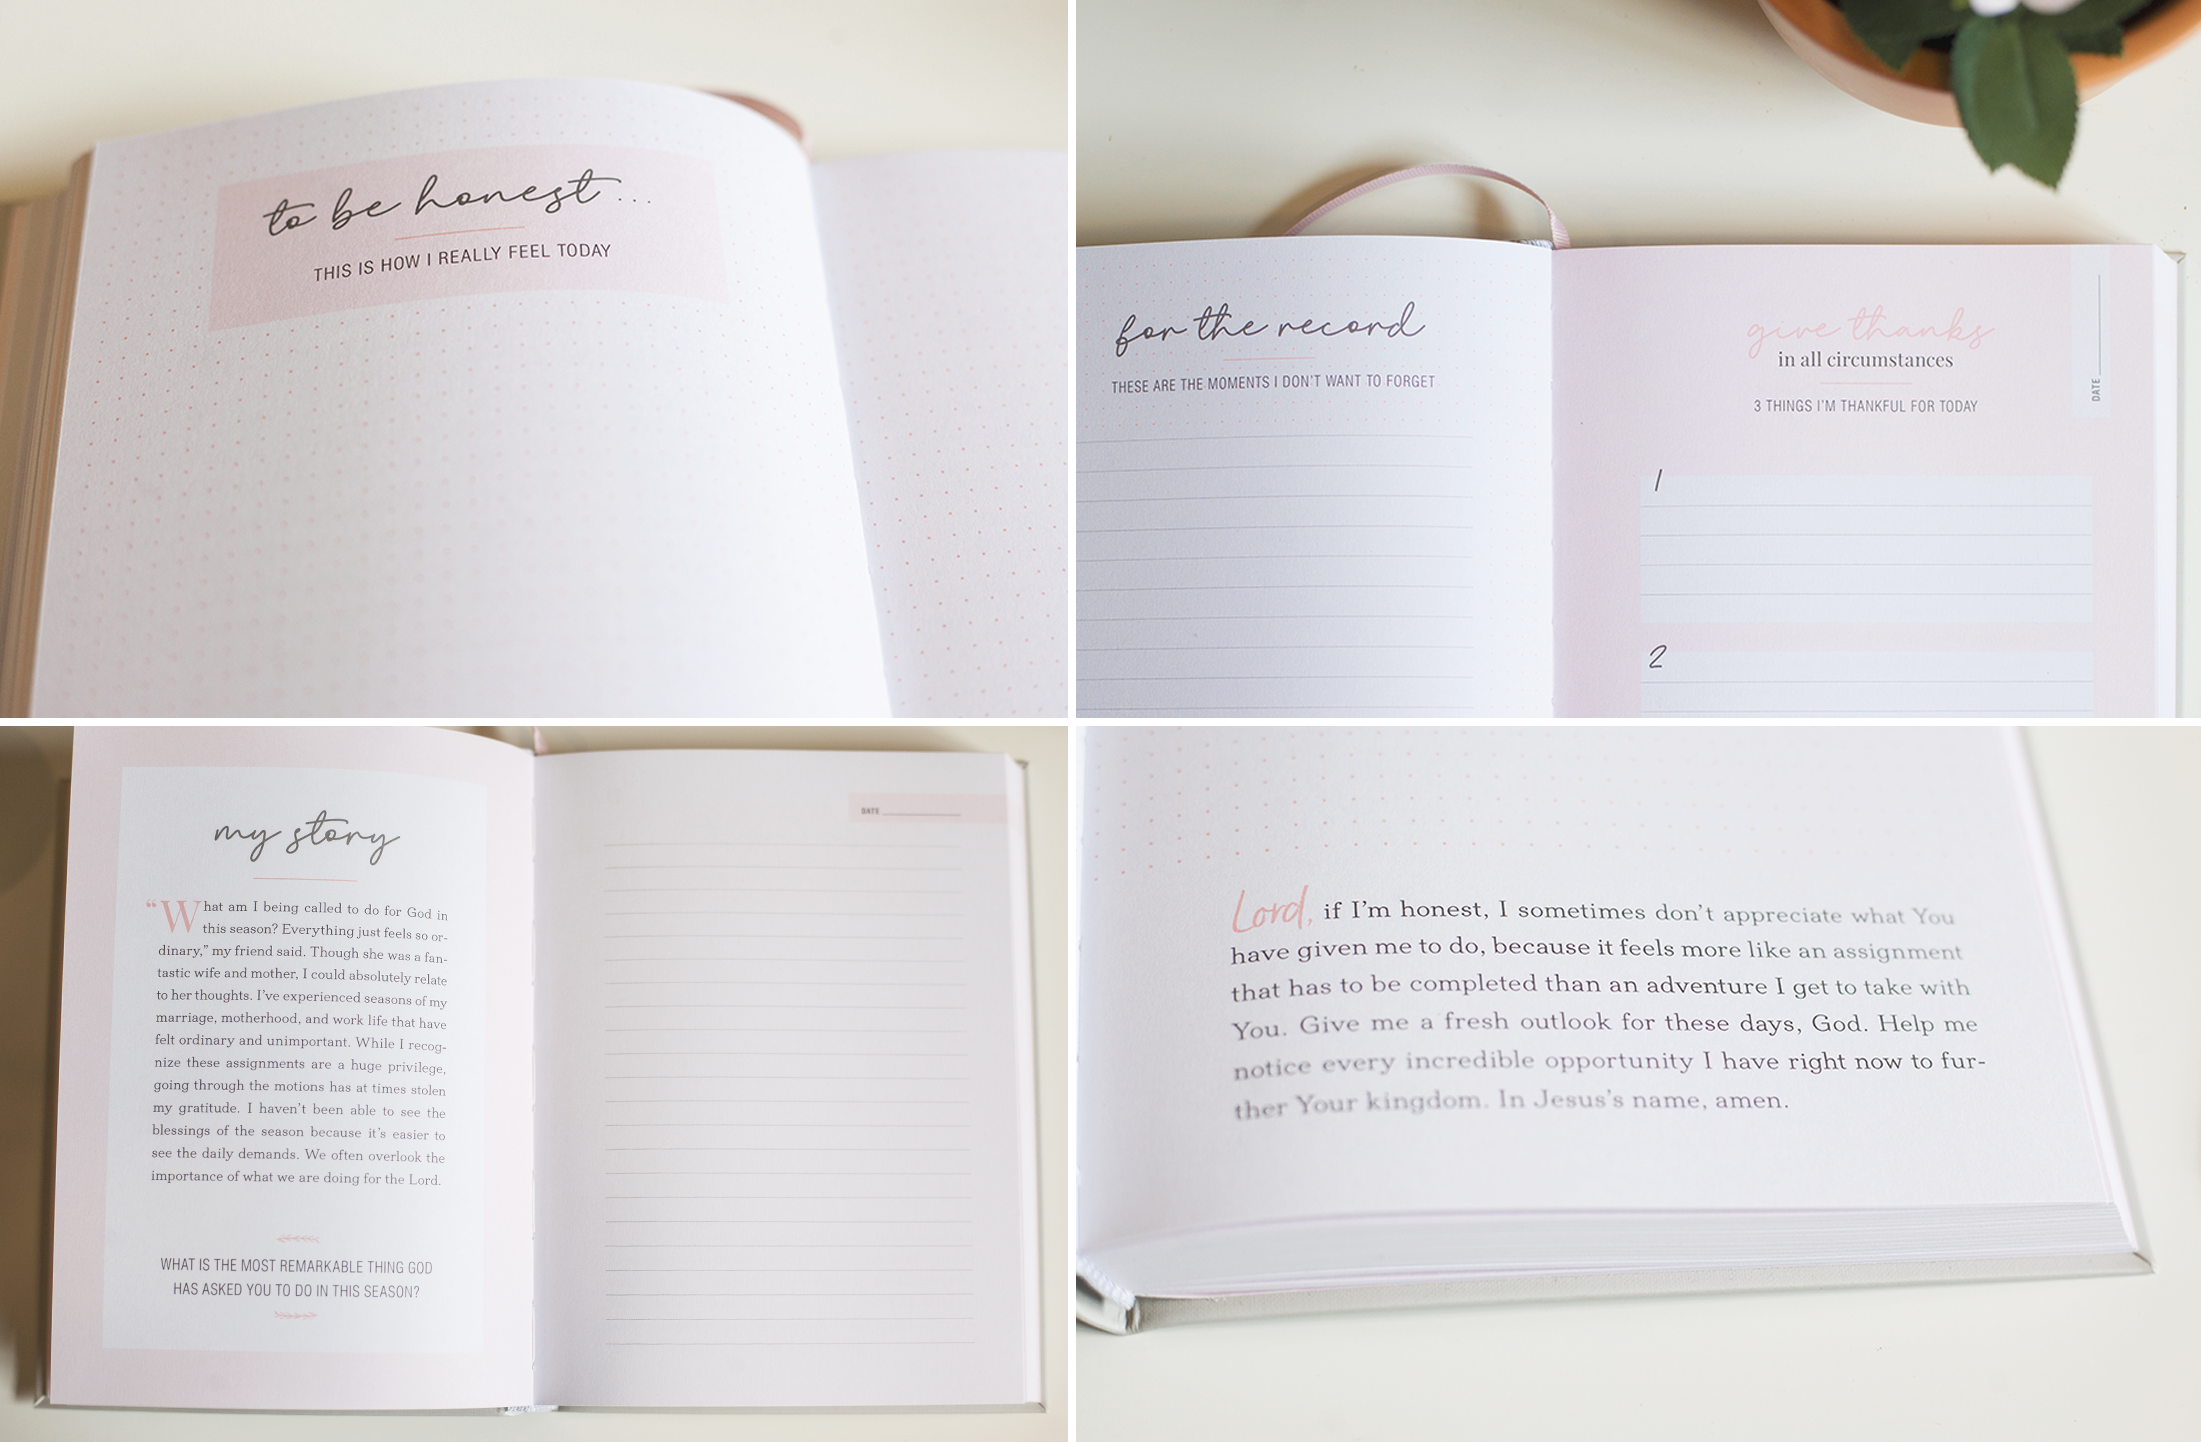 to be honest...
THIS IS HOW I REALLY FEEL TODAY
for the record
THESE ARE THE MOMENTS I DON'T WANT TO FORGET
give thanks
in all circumstances
3 THINGS I'M THANKFUL FOR TODAY
DATE
1
2
my story
"What am I being called to do for God in
this season? Everything just feels so or-
dinary," my friend said. Though she was a fan-
tastic wife and mother, I could absolutely relate
to her thoughts. I've experienced seasons of my
marriage, motherhood, and work life that have
felt ordinary and unimportant. While I recog-
nize these assignments are a huge privilege,
going through the motions has at times stolen
my gratitude. I haven't been able to see the
blessings of the season because it's easier to
see the daily demands. We often overlook the
importance of what we are doing for the Lord.
WHAT IS THE MOST REMARKABLE THING GOD
HAS ASKED YOU TO DO IN THIS SEASON?
DATE
Lord, if I'm honest, I sometimes don't appreciate what You
have given me to do, because it feels more like an assignment
that has to be completed than an adventure I get to take with
You. Give me a fresh outlook for these days, God. Help me
notice every incredible opportunity I have right now to fur-
ther Your kingdom. In Jesus's name, amen.